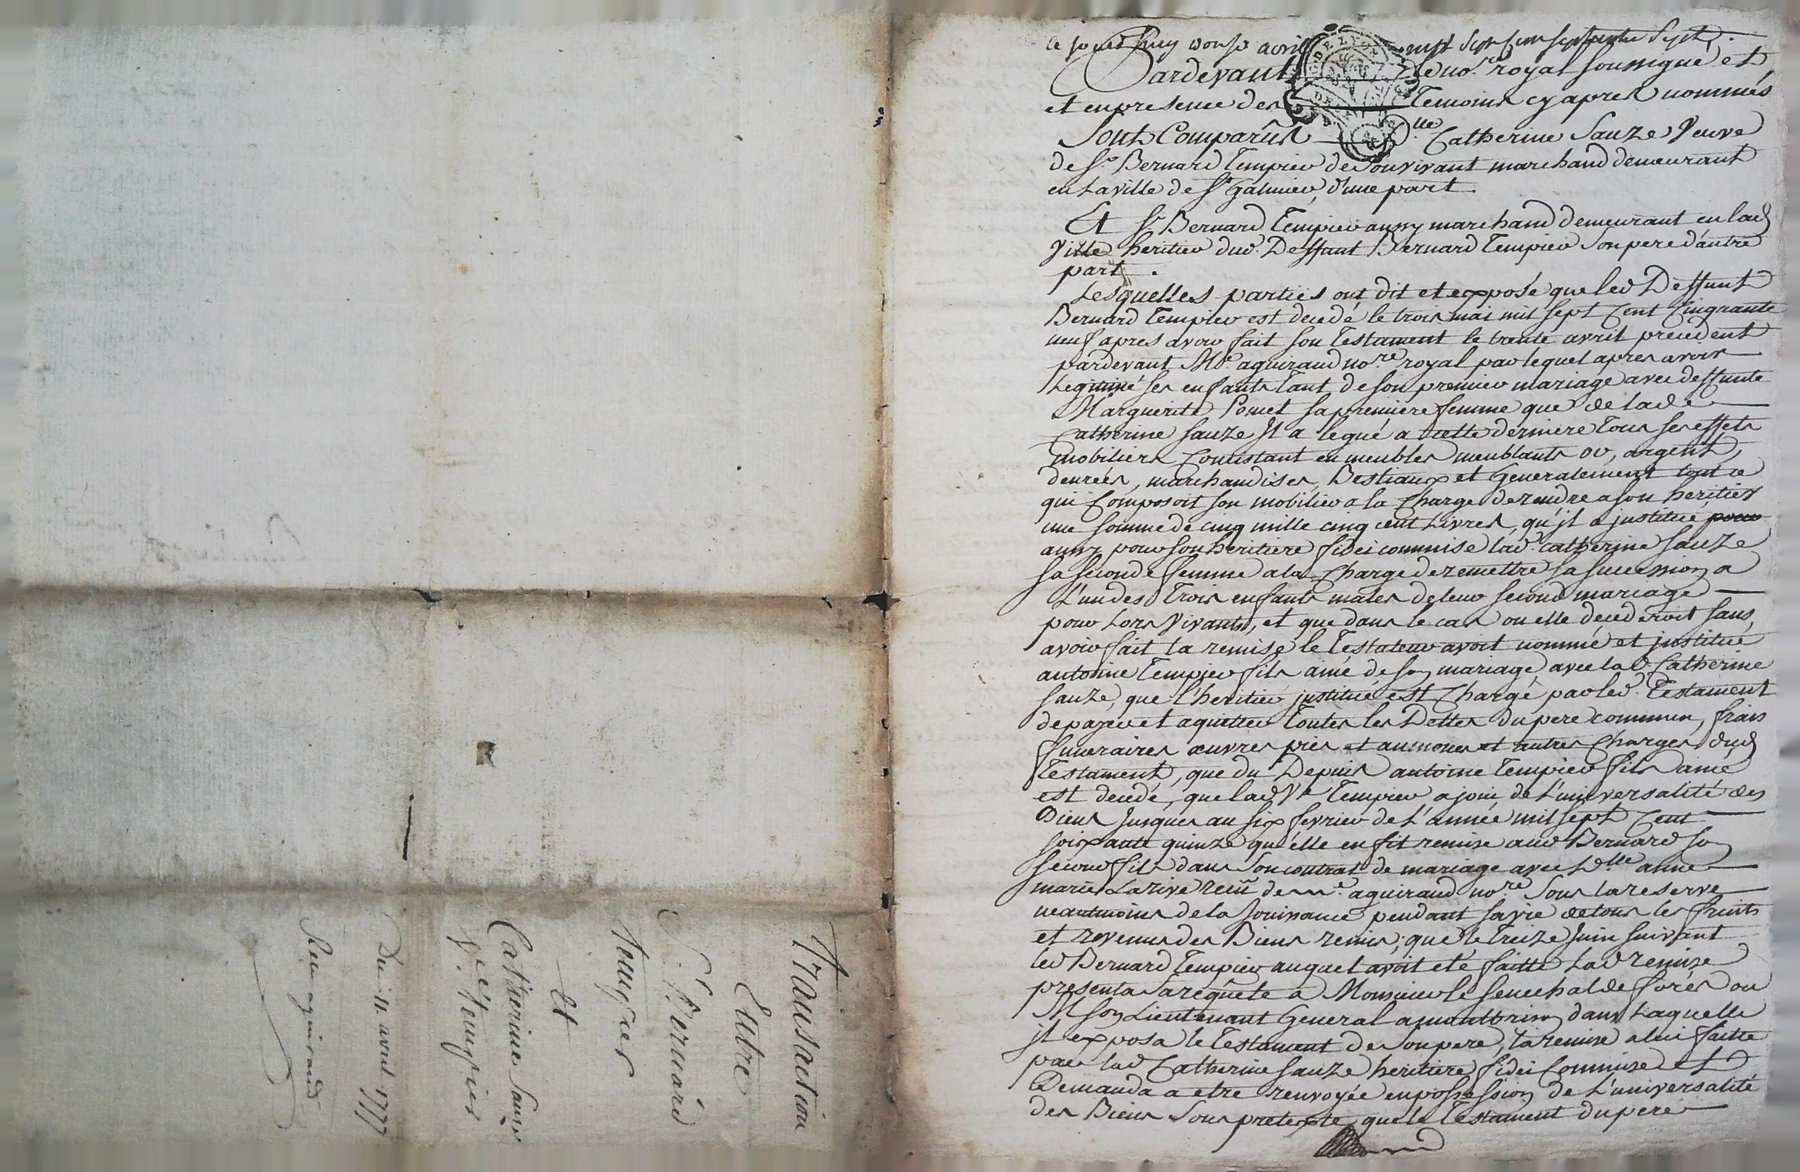 Transaction
Entre
Sr. Bernard
tempier
et
Catherine Sauze
Ve. tempier
Du 11. avril 1777
Recu aguiraud
ce jourd'huy onze avril mil sept cent septante sept,
Pardevant le no.re royal soussigné et
et en presence des temoins cy apres nommés
Sont Comparus D.lle Catherine Sauze Veuve
de Sr. Bernard Tempier de Son vivant marchand demeurant
en la ville de St. galmier, d'une part.
Et Sr. Bernard Tempier aussy marchand demeurant en lad
Ville heritier dud. Deffunt Bernard Tempier Son pere d'autre
part.
Lesquelles parties ont dit et exposé que led Deffunt
Bernard Tempier est decedé le trois mai mil sept Cent Cinquante
neuf apres avoir fait son Testament le trente avril precedent
pardevant Me. aguiraud no.re royal par lequel apres avoir
Legitimé ses enfants tant de son premier mariage avec deffunte
Marguerite Pomet sa premiere femme que de lade
Catherine Sauze Il a legué a cette derniere tous ses effets
mobiliers Consistant en meubles meublants or, argent,
denrées, marchandises, Bestiaux et Generalement tout ce
qui Composoit son mobilier a la Charge de rendre a son heritier
une somme de cinq mille cinq cent Livres, qu'il a justitué pour
aussy pour son heritiere fidei commise lad. Catherine Sauze
sa seconde femme a la Charge de remettre sa succession a
L'un des Trois enfants males de leur second mariage
pour Lors Vivants, et que dans le cas ou elle decederoit sans
avoir fait la remise le Testateur avoit nommé et justitué
antoine Tempier fils ainé de son mariage avec lad Catherine
Sauze, que l'heritier justitué est Chargé par led. Testament
de payer et aquitter toutes les Dettes du pere commun, frais
funeraires œuvres pies et aumones et autres Charges dud
Testament, que du Depuis antoine Tempier fils ainé
est decedé, que lad Ve Tempier a joui de L'universalité des
Biens jusques au six fevrier de L'année mil sept Cent
soixante quinze qu'elle en fit remise aud Bernard son
second fils dans son contrat de mariage avec D.lle anne
marie Larive recu de Me. aguiraud no.re Sous la reserve
neantmoins de la Jouissance pendant sa vie de tous les fruits
et revenus des Biens remis; que le treize Juin suivant
led Bernard Tempier auquel avoit eté faitte lad remise
presenta sa requete a Monsieur le Senechal de forés ou
M son Lieutenant General a montbrison dans Laquelle
il exposa le Testament de son pere, la remise a lui faitte
par lad Catherine Sauze heritiere fidei Commise et
Demanda a etre renvoyée en possession de L'universalité
des Biens sous pretexte que le Testament du pere